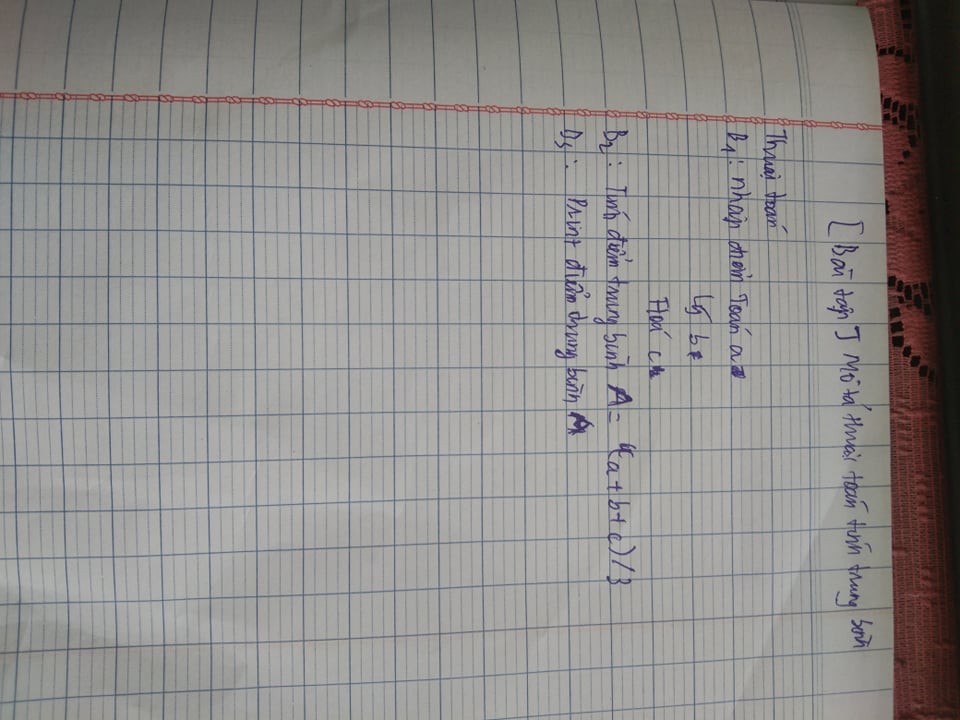 [Bài tập] Mô tả thuật toán tính trung bình
Thuật toán
B1: nhập điểm Toán a
Lý b
Hoá c
B2: Tính điểm trung bình A = (a+b+c)/3
B3: Print điểm trung bình A